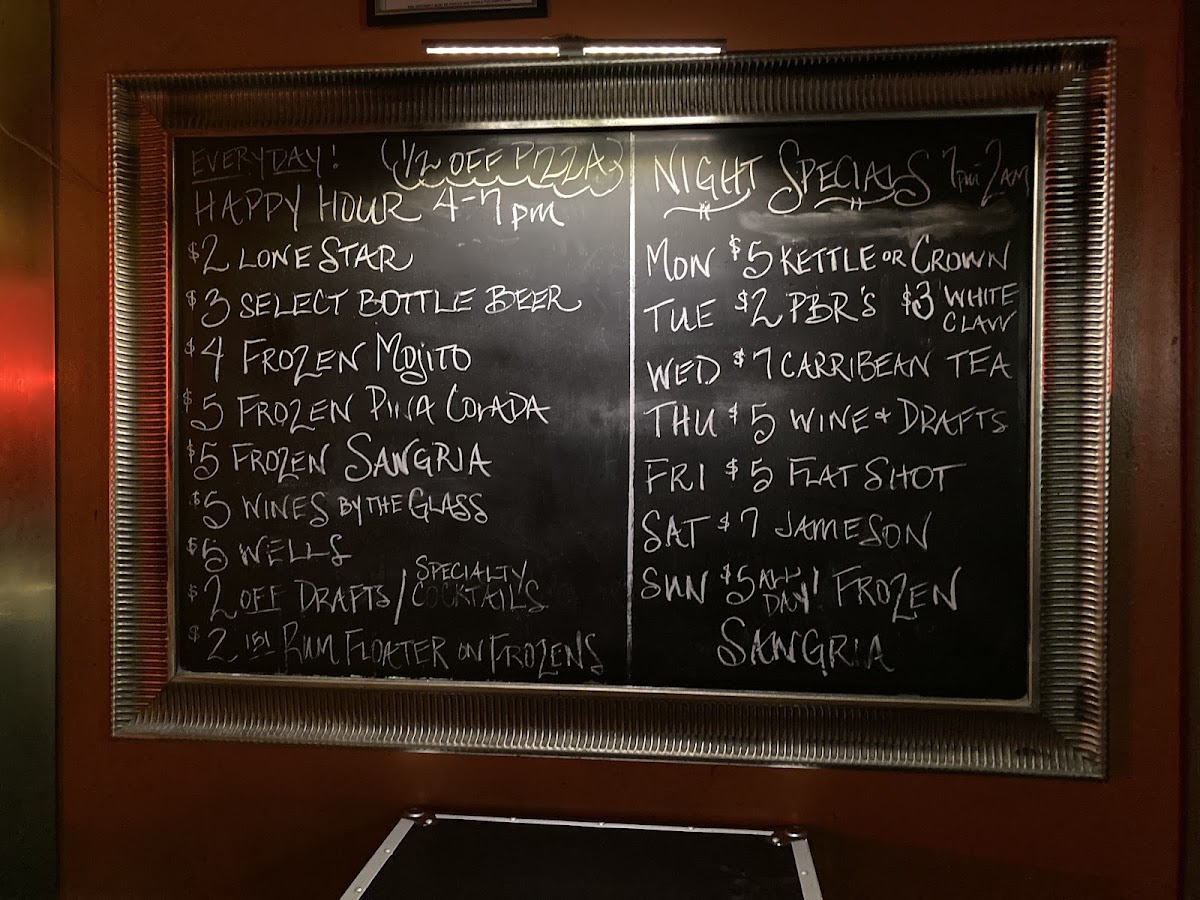 EVERYDAY! (1/2 OFF PIZZA)
HAPPY HOUR 4-7pm
$2 LONE STAR
$3 SELECT BOTTLE BEER
$4 FROZEN MOJITO
$5 FROZEN PINA COLADA
$5 FROZEN SANGRIA
$5 WINES BY THE GLASS
$5 WELLS
$2 OFF DRAFTS/SPECIALTY COCKTAILS
$2 151 RUM FLOATER ON FROZENS
NIGHT SPECIALS 7pm-2AM
MON $5 KETTLE OR CROWN
TUE $2 PBR'S $3 WHITE CLAW
WED $7 CARRIBEAN TEA
THU $5 WINE & DRAFTS
FRI $5 FLAT SHOT
SAT $7 JAMESON
SUN $5 ALL DAY! FROZEN
SANGRIA